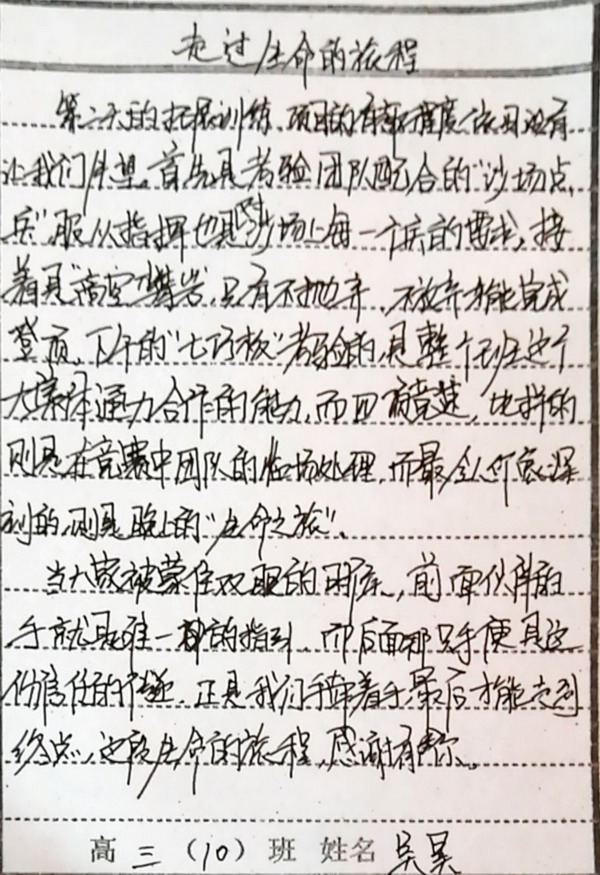 走过生命的旅程
第二天的拓展训练,项目的有趣程度依旧没有
让我们失望。首先是考验团队配合的“沙场点
兵”,服从指挥也是沙场上每一个兵的要求,接
着是“高空”攀岩,只有不抛弃,不放弃才能完成
登顶,下午的“七巧板”考验的是整个班这个
大集体通力合作的能力,而四竞速,比拼的
则是在竞赛中团队的临场处理,而最令人印象深
刻的,则是晚上的“生命之旅”。
当大家被蒙住双眼的时候,前面伙伴的
手就是唯一的指引,而后面那只手便是这
份信任的传递,正是我们手牵着手最后才能走到
终点,这段生命的旅程,感谢有你。
高三(10)班 姓名 吴昊